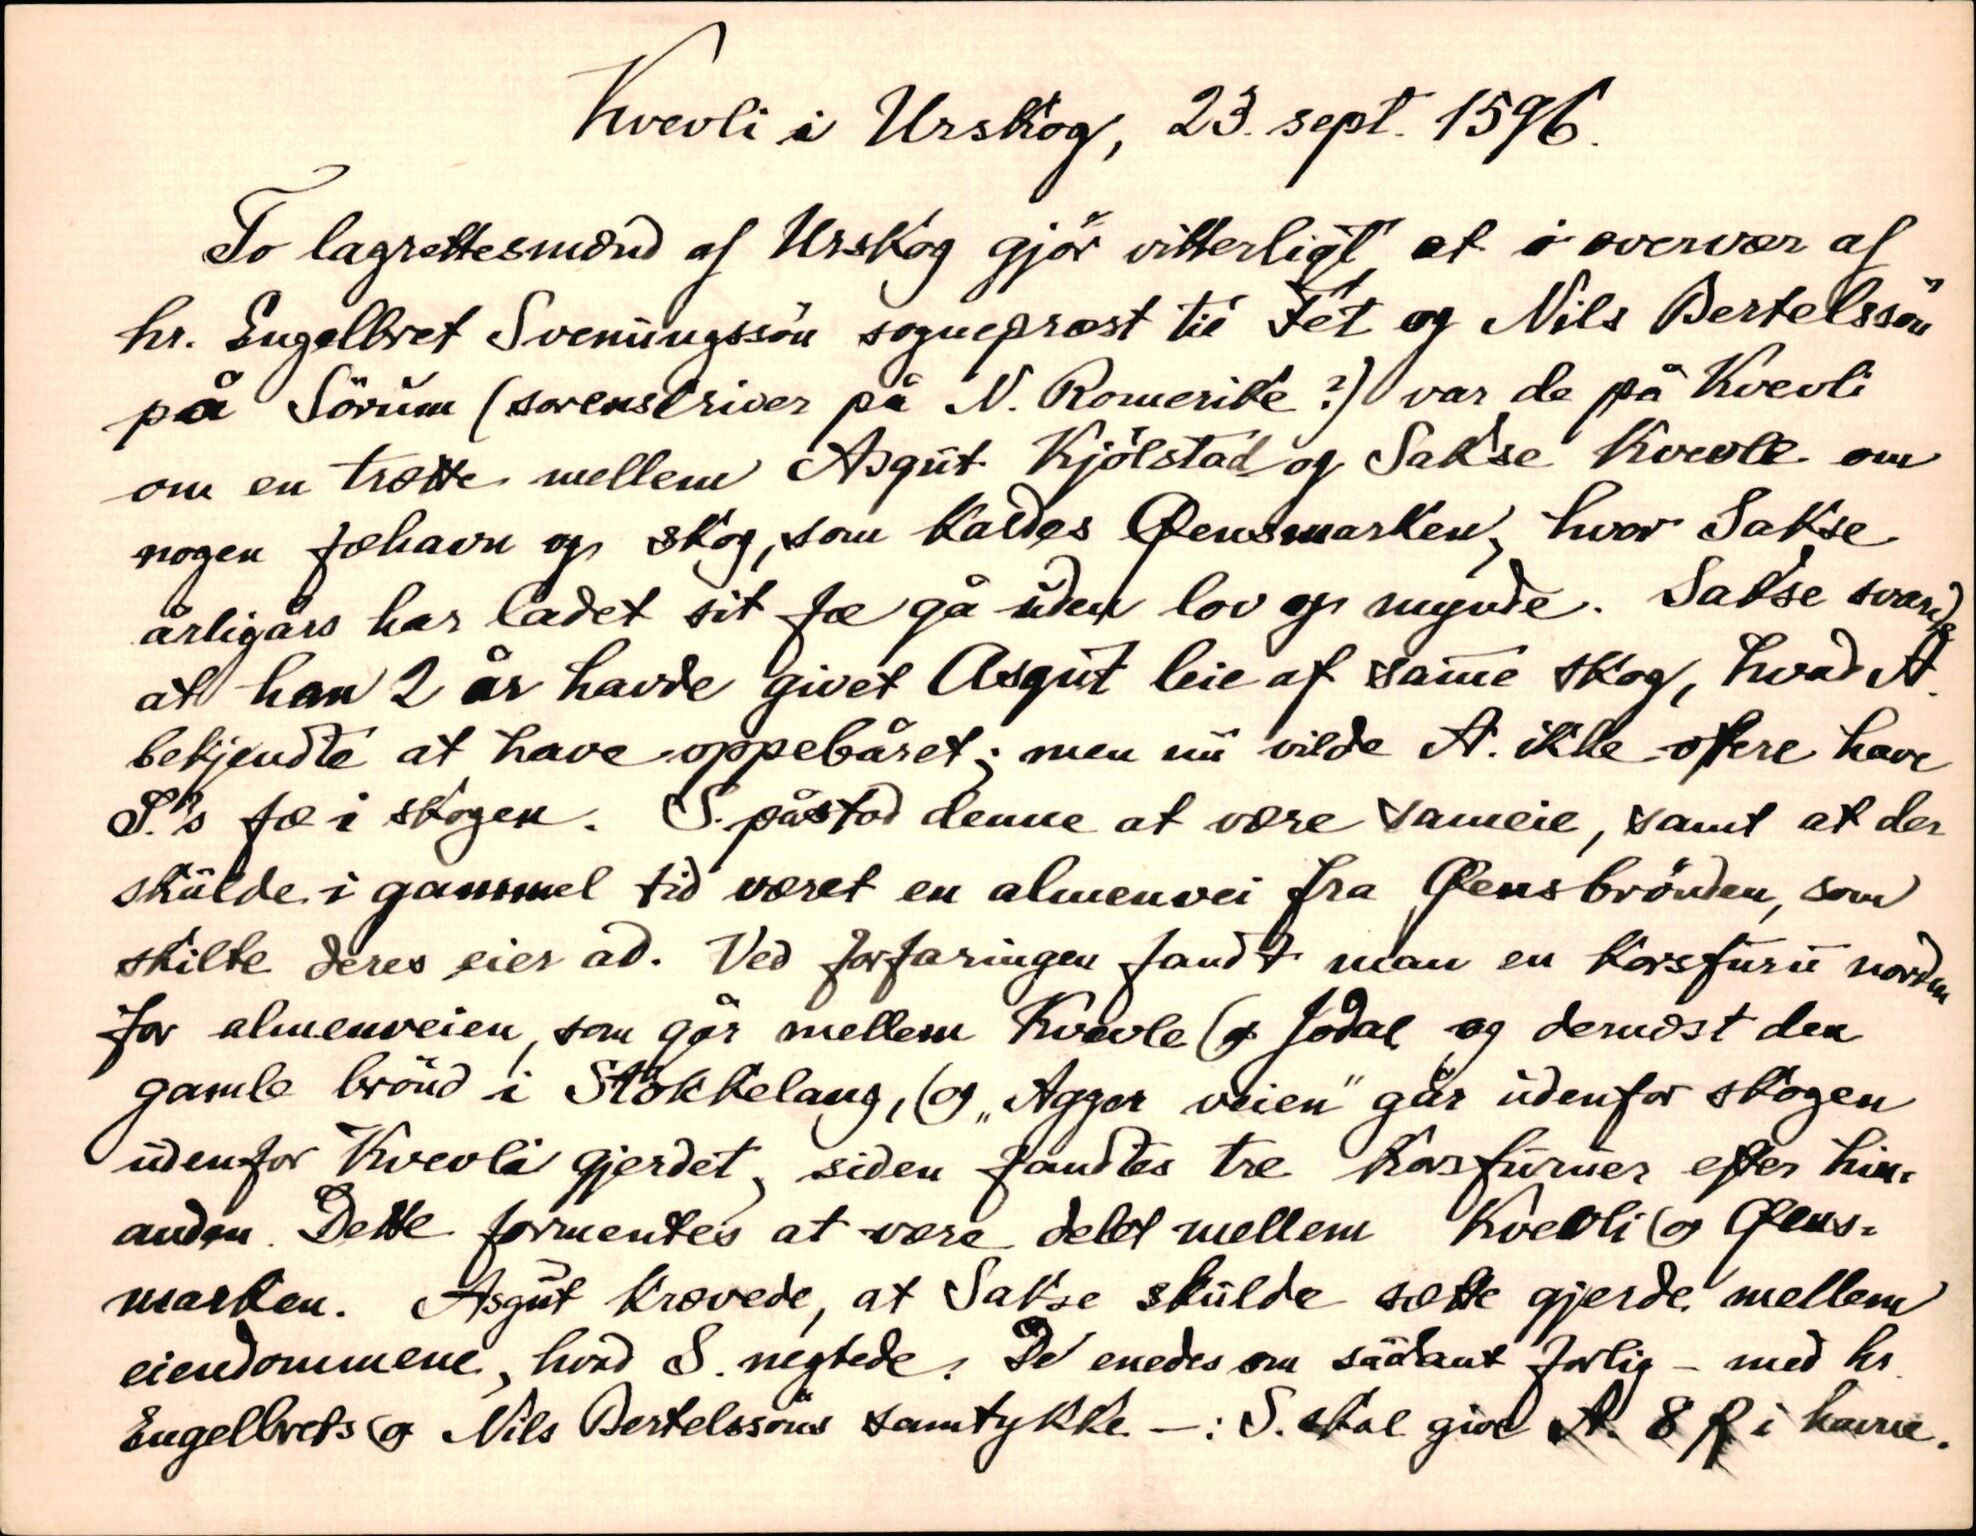 Kvevli i Urskog, 23. sept. 1596.
To lagrettesmænd af Urskog gjör vitterligt, at i overvær af
hr. Engelbret Svenungssön sognepræst til Fet og Nils Bertelssön
på Sörum (sorenskriver på N. Romerike?) var de på Kvevli
om en trætte mellem Asgut Kjölstad og Sakse Kvevle om
nogen fæhavn og skog, som kaldes Øensmarken, hvor Sakse
årligårs har ladet sit fæ gå uden lov og mynde. Sakse svarede
at han 2 år havde givet Asgut leie af samme skog, hvad A.
bekjendte at have oppebåret; men nu vilde A. ikke oftere have
S.'s fæ i skogen. S. påstod denne at være sameie, samt at der
skulde i gammel tid været en almenvei fra Øensbrönden, som
skilte deres eier ad. Ved forfaringen fandt man en korsfuru norden
for almenveien, som går mellem Kvevle og Jodal og dernæst den
gamle brönd i Stokkelang, og „Agger veien" går udenfor skogen
udenfor Kvevli gjerdet, siden fandtes tre korsfuruer efter hin-
anden. Dette formentes at være delet mellem Kvevli og Øens-
marken. Asgut krævede, at Sakse skulde sætte gjerde mellem
eiendommene, hvad S. negtede. De enedes om sådant forlig – med hr.
Engelbrets og Nils Bertelssöns samtykke –: S. skal give A. 8 β i havne.